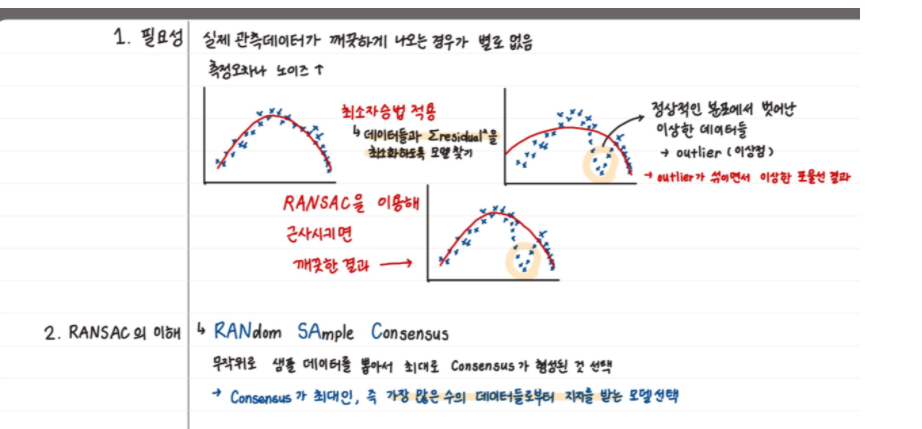 1. 필요성
실제 관측데이터가 깨끗하게 나오는 경우가 별로 없음
측정오차나 노이즈 ↑
최소자승법 적용
↳ 데이터들과 Σresidual²을
최소화하도록 모델 찾기
정상적인 분포에서 벗어난
이상한 데이터들
→ outlier (이상점)
→ outlier가 섞이면서 이상한 포물선 결과
RANSAC을 이용해
근사시키면
깨끗한 결과 →
2. RANSAC의 이해
↳ RANdom SAmple Consensus
무작위로 샘플 데이터를 뽑아서 최대로 Consensus가 형성된 것 선택
→ Consensus가 최대인, 즉 가장 많은 수의 데이터들로부터 지지를 받는 모델 선택